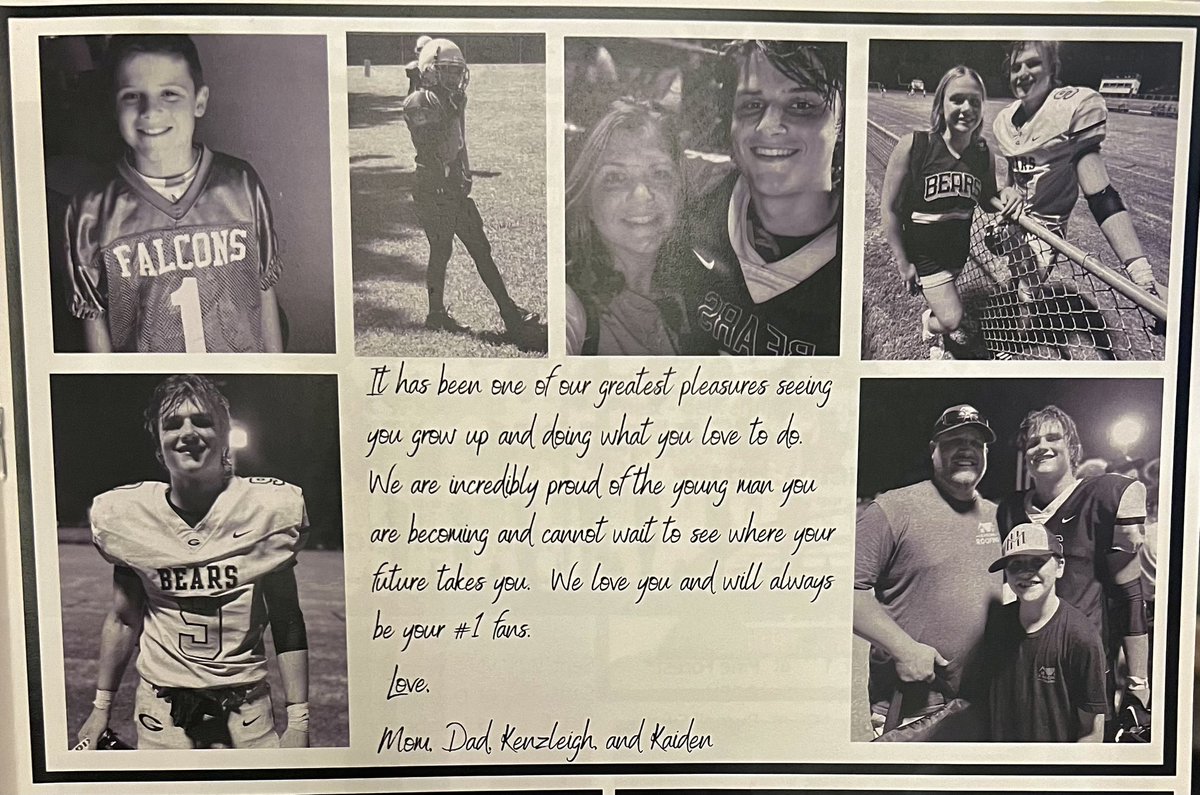 FALCONS
1
BEARS
BEARS
ARS
BEARS
It has been one of our greatest pleasures seeing
you grow up and doing what you love to do.
We are incredibly proud of the young man you
are becoming and cannot wait to see where your
future takes you. We love you and will always
be your #1 fans.
Love,
Mom, Dad, Kenzleigh, and Kaiden
ROOFING